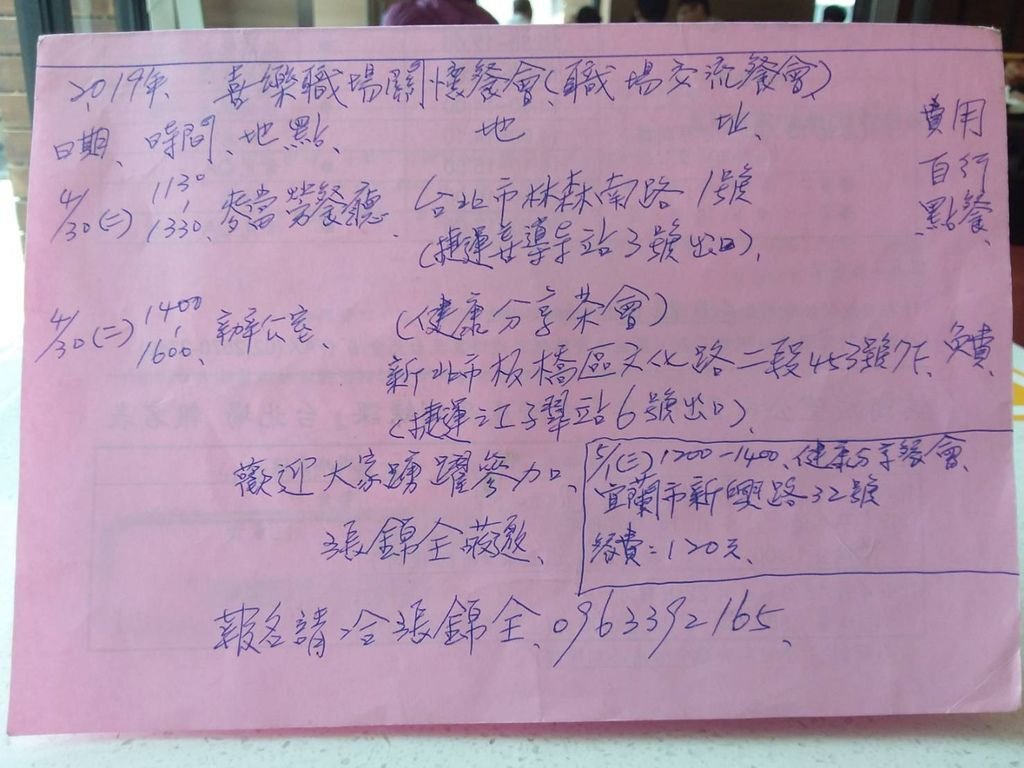 2019年 喜樂職場關懷餐會(職場交流餐會)
日期、時間、地點、地址、費用
4/30(二) 1130-1330、麥當勞餐廳、台北市林森南路1號 自行點餐、
(捷運善導寺站3號出口)、
4/30(二) 1400-1600、辦公室、(健康分享茶會)
新北市板橋區文化路二段453號7F、免費、
(捷運江子翠站6號出口)、
歡迎大家踴躍參加、
張錦全敬邀、
5/1(三) 1200-1400、健康分享餐會、
宜蘭市新興路32號
餐費:120元、
報名請洽張錦全、0963392165、